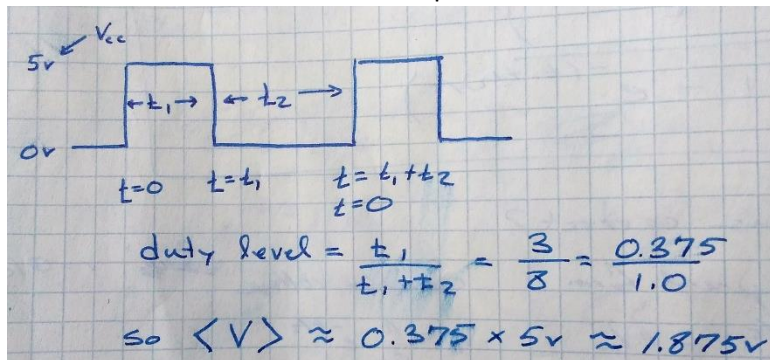 Vcc
5v
← t₁ → ← t₂ →
0v
t=0 t=t₁ t=t₁+t₂
t=0
duty level = t₁/(t₁+t₂) = 3/8 = 0.375/1.0
so <V> ≈ 0.375 × 5v ≈ 1.875v